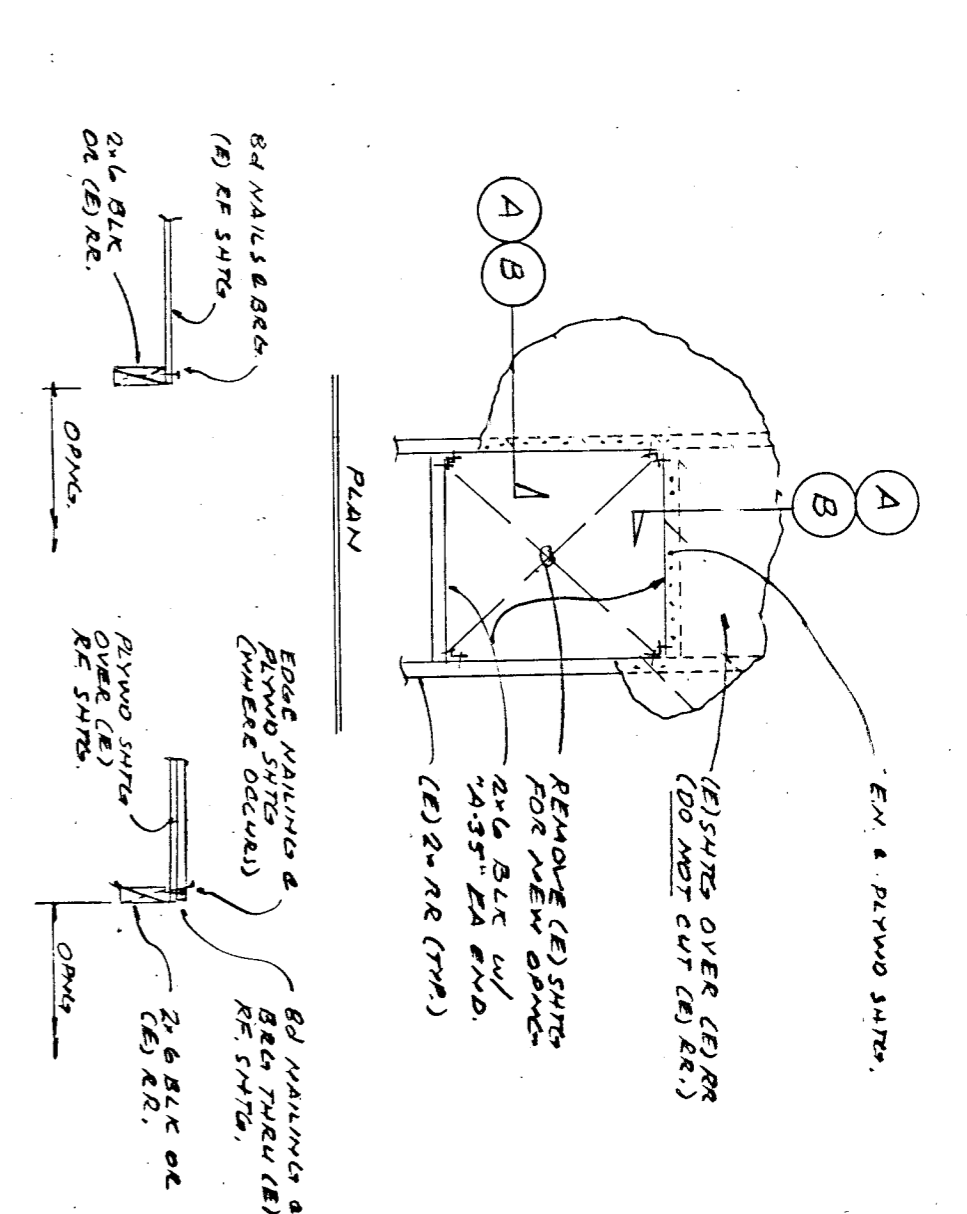 E.N. @ PLYWD SHTG.
(E) SHTG OVER (E) RR
(DO NOT CUT (E) RR.)
REMOVE (E) SHTG
FOR NEW OPNG
2x6 BLK W/
"A-35" EA END.
(E) 2x RR (TYP.)
A
B
A
B
PLAN
8d NAILS @ BRG.
(E) RF SHTG
2x6 BLK
OR (E) RR.
OPNG.
EDGE NAILING @
PLYWD SHTG
(WHERE OCCURS)
PLYWD SHTG
OVER (E)
RF. SHTG.
8d NAILING @
BRG THRU (E)
RF. SHTG.
2x6 BLK OR
(E) RR.
OPNG